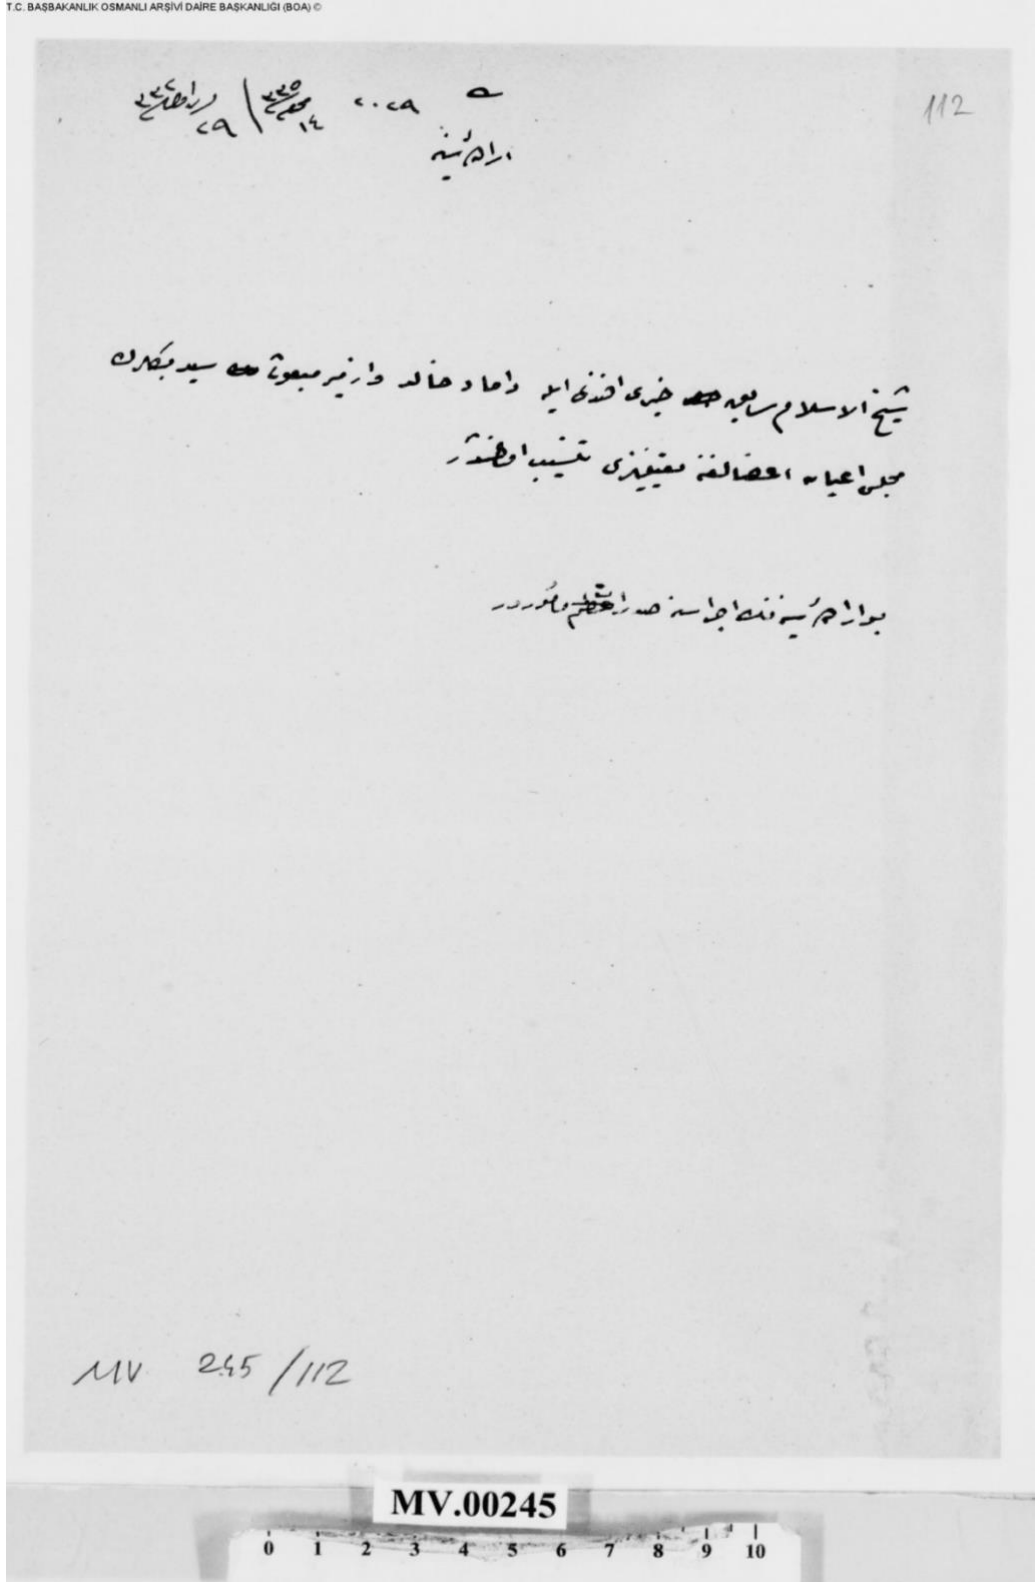 T.C. BAŞBAKANLIK OSMANLI ARŞİVİ DAİRE BAŞKANLIĞI (BOA) ©
112
٢٠٢٩ ١٤ محرم ٣٣٥ ٢٩ ٣٣٢
اراده سنیه
شیخ الاسلام سابق خیری افندی ایله داماد خالد و ازمیر مبعوثی سید بكلرك
مجلس اعیان اعضالغنه تعیینلری تنسیب اولنمشدر
بو اراده سنیه نك اجراسنه صدر اعظم مأموردر
MV 245/112
MV.00245
0 1 2 3 4 5 6 7 8 9 10